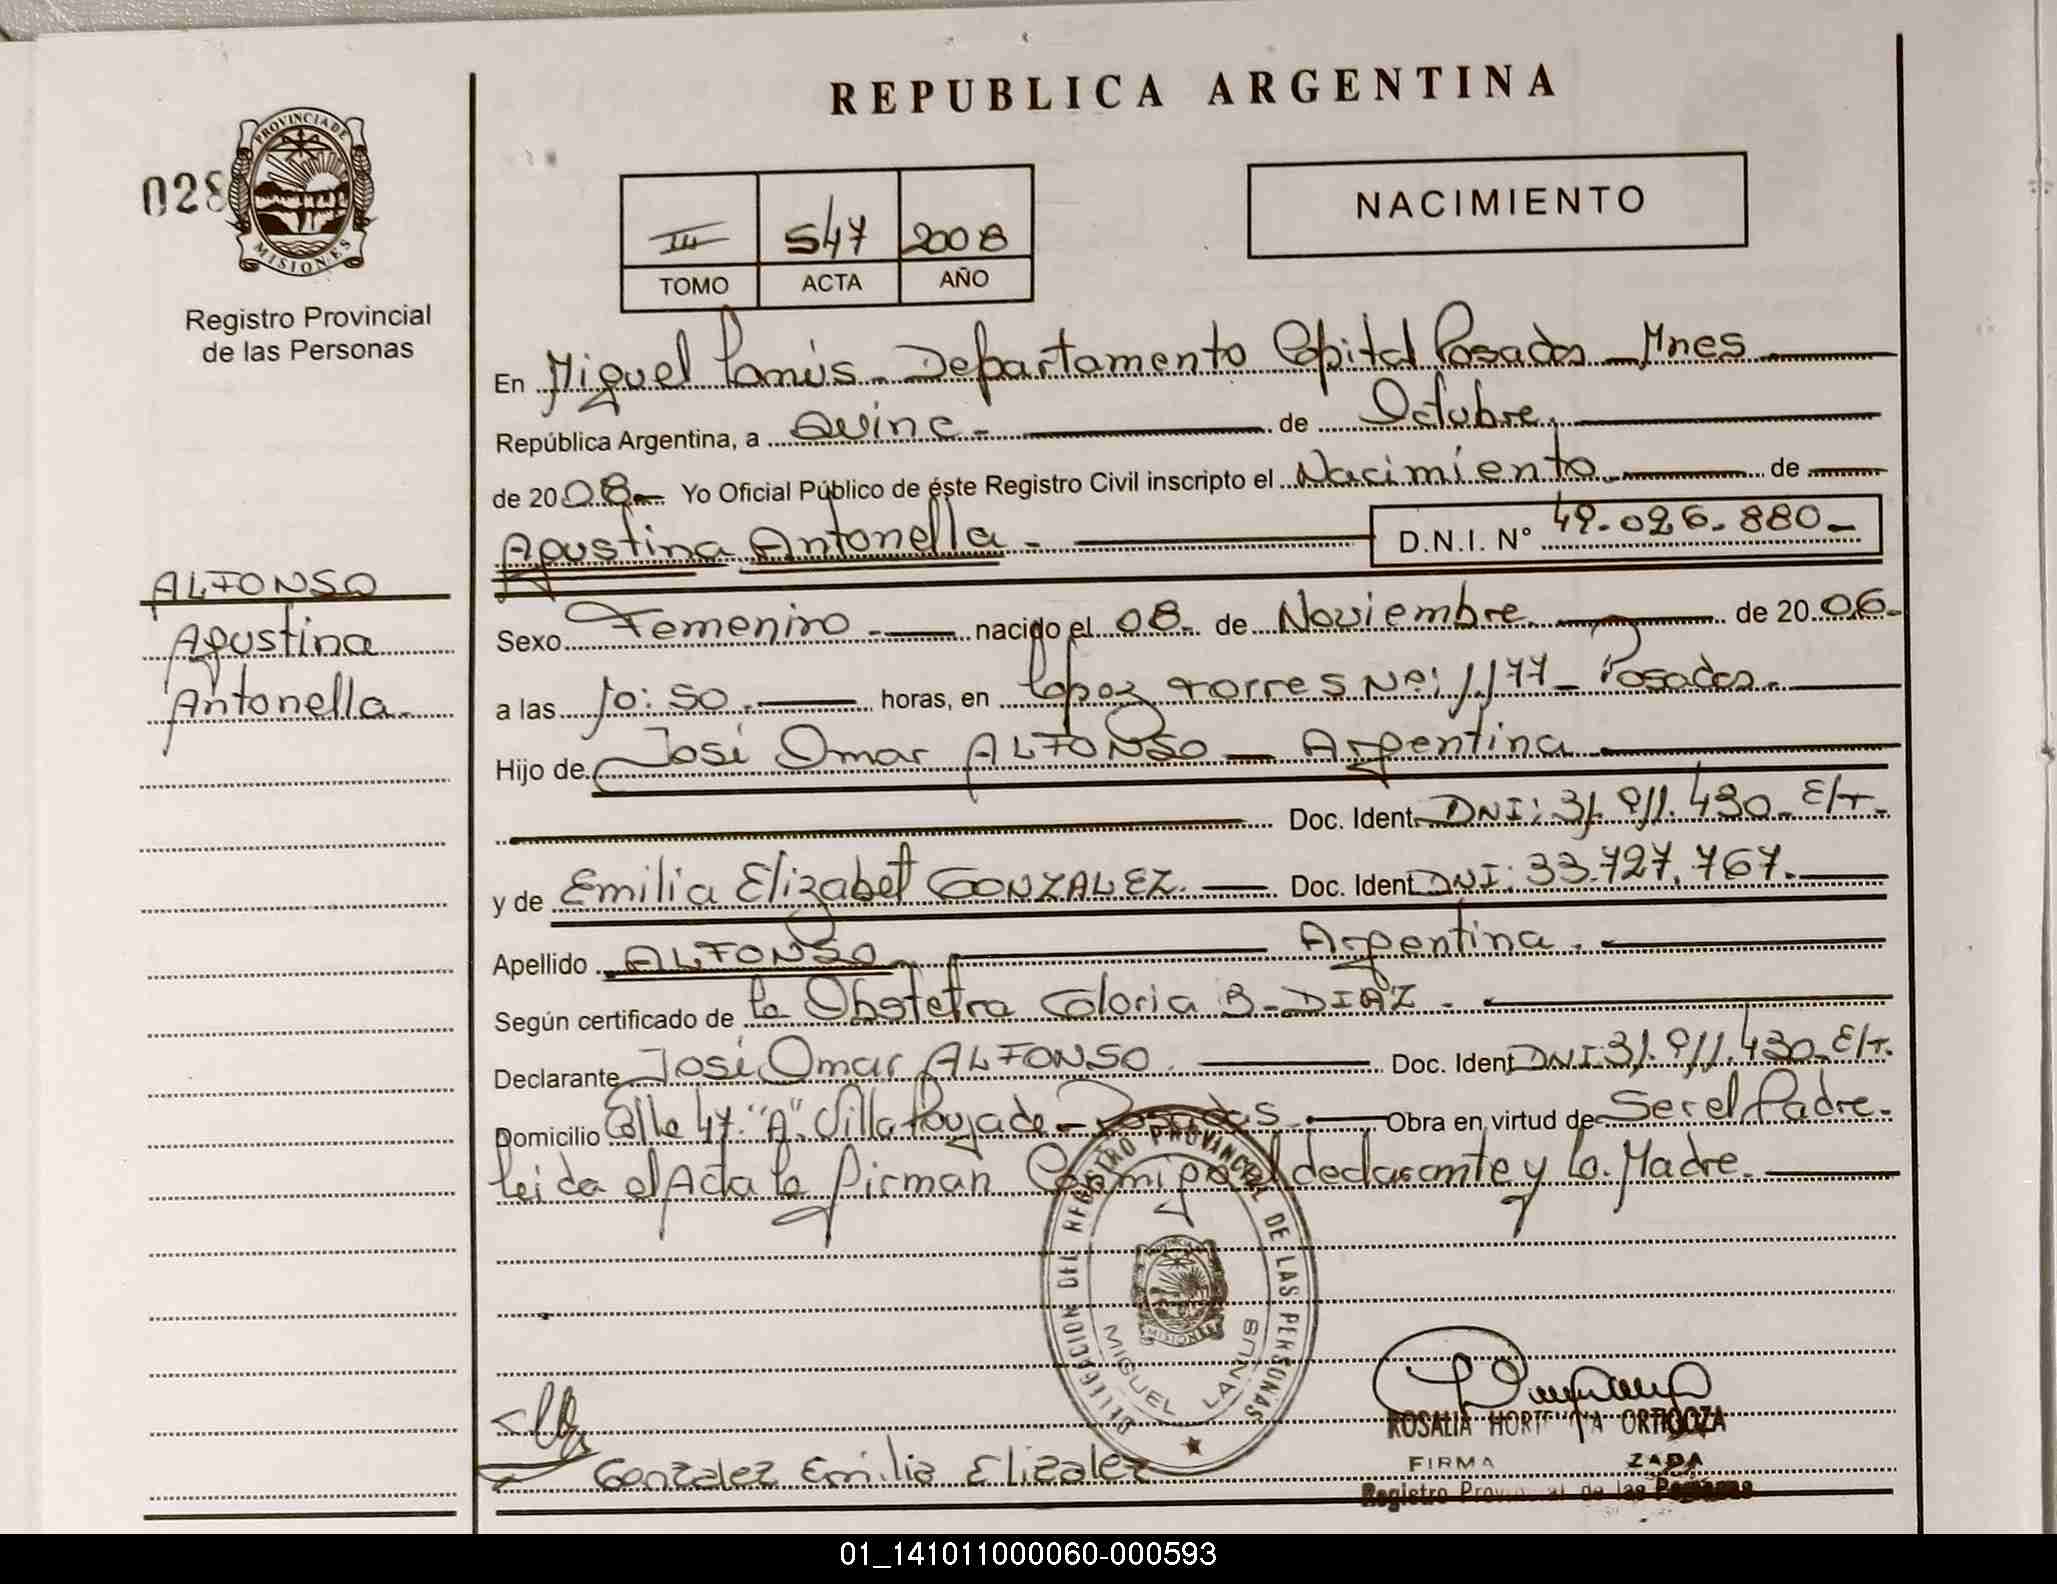 REPUBLICA ARGENTINA
028
PROVINCIA DE
MISIONES
Registro Provincial
de las Personas
NACIMIENTO
III 547 2008
TOMO ACTA AÑO
En Miguel Lanús - Departamento Capital Posadas - Mnes
República Argentina, a Quince - de Octubre.
de 2008 - Yo Oficial Público de éste Registro Civil inscripto el Nacimiento. de
Agustina Antonella - D.N.I. Nº 49.026.880 -
ALFONSO
Agustina
Antonella.
Sexo Femenino - nacido el 08 - de Noviembre de 2006 -
a las 10:50. horas, en Lopez Torres Nº: 1177 - Posadas.
Hijo de José Omar ALFONSO - Argentina
Doc. Ident. DNI: 31.911.430 - E/T.
y de Emilia Elizabet GONZALEZ. Doc. Ident DNI: 33.727.767.
Apellido ALFONSO Argentina.
Según certificado de la Obstetra Gloria B. DIAZ -
Declarante José Omar ALFONSO. Doc. Ident DNI: 31.911.430 - E/T.
Domicilio Calle 47 "A" Villa Poujade - Posadas. Obra en virtud de Ser el Padre.
Leida el Acta la firman Conmigo el declarante y la Madre.
DELEGACION DEL REGISTRO PROVINCIAL DE LAS PERSONAS
PROVINCIA
MISIONES
MIGUEL LANUS
Gonzalez Emilia Elizabet
ROSALIA ORTIGOZA
FIRMA
Registro de las Personas
01_141011000060-000593